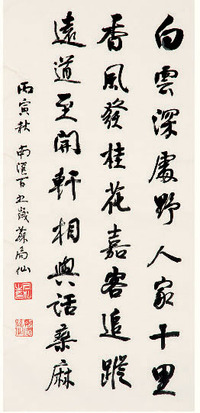 白雲深處野人家十里
香風發桂花嘉客追蹤
遠道至開軒相與話桑麻
丙寅秋 南滙百五歲蘇局仙